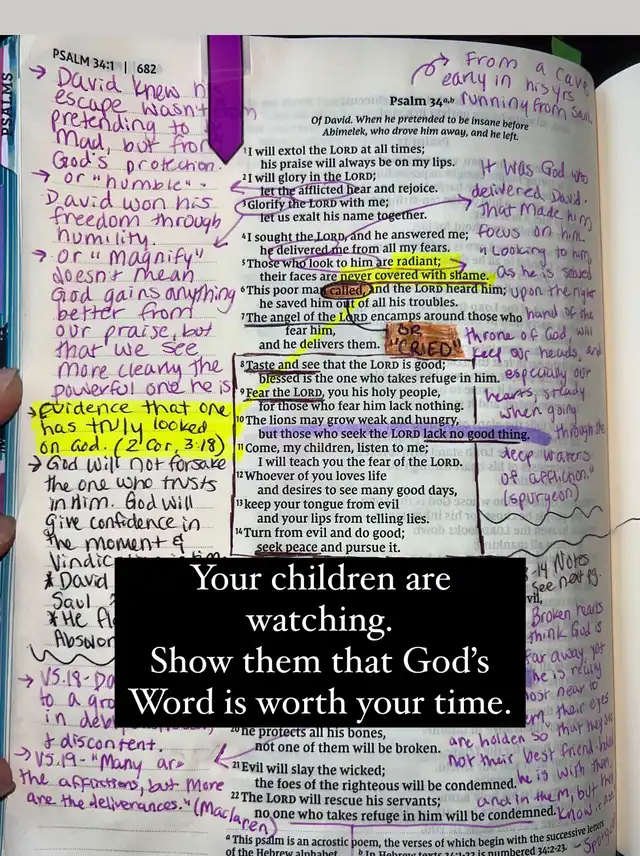 PSALM 34:1 | 682
PSALMS
→ David knew his
escape wasn't from
pretending to be
mad, but from
God's protection.
→ or "humble".
David won his
freedom through
humility.
→ or "magnify"
doesn't mean
God gains anything
better from
our praise, but
that we see
more clearly the
powerful one he is
→ Evidence that one
has truly looked
on God. (2 Cor. 3:18)
→ God will not forsake
the one who trusts
in Him. God will
give confidence in
the moment &
Vindic
* David
Saul
* He fl
Absalom
→ VS.18- Da
to a gro
in deb
& discontent.
→ VS.19- "Many are
the afflictions, but More
are the deliverances." (Maclaren)
Psalm 34a,b
Of David. When he pretended to be insane before
Abimelek, who drove him away, and he left.
1 I will extol the LORD at all times;
his praise will always be on my lips.
2 I will glory in the LORD;
let the afflicted hear and rejoice.
3 Glorify the LORD with me;
let us exalt his name together.
4 I sought the LORD, and he answered me;
he delivered me from all my fears.
5 Those who look to him are radiant;
their faces are never covered with shame.
6 This poor man called, and the LORD heard him;
he saved him out of all his troubles.
7 The angel of the LORD encamps around those who
fear him,
and he delivers them.
OR
"CRIED"
8 Taste and see that the LORD is good;
blessed is the one who takes refuge in him.
9 Fear the LORD, you his holy people,
for those who fear him lack nothing.
10 The lions may grow weak and hungry,
but those who seek the LORD lack no good thing.
11 Come, my children, listen to me;
I will teach you the fear of the LORD.
12 Whoever of you loves life
and desires to see many good days,
13 keep your tongue from evil
and your lips from telling lies.
14 Turn from evil and do good;
seek peace and pursue it.
Your children are
watching.
Show them that God's
Word is worth your time.
20 he protects all his bones,
not one of them will be broken.
21 Evil will slay the wicked;
the foes of the righteous will be condemned.
22 The LORD will rescue his servants;
no one who takes refuge in him will be condemned.
a This psalm is an acrostic poem, the verses of which begin with the successive letters
of the Hebrew alphabet. b In Hebrew texts 34:1-22 is numbered 34:2-23.
From a cave
early in his yrs
running from Saul.
It was God who
delivered David.
That made him
focus on him
"Looking to him,
as he is seated
upon the right
hand of the
throne of God, will
keep our heads, and
especially our
hearts, steady
when going
through the
deep waters
of affliction."
(spurgeon)
-14 Notes
see next pg.
evil,
Broken hearts
think God is
far away yet
he is really
most near to
them their eyes
are holden so that they see
not their best friend.
he is with them
and in them, but they
know it not
- Spurgeon